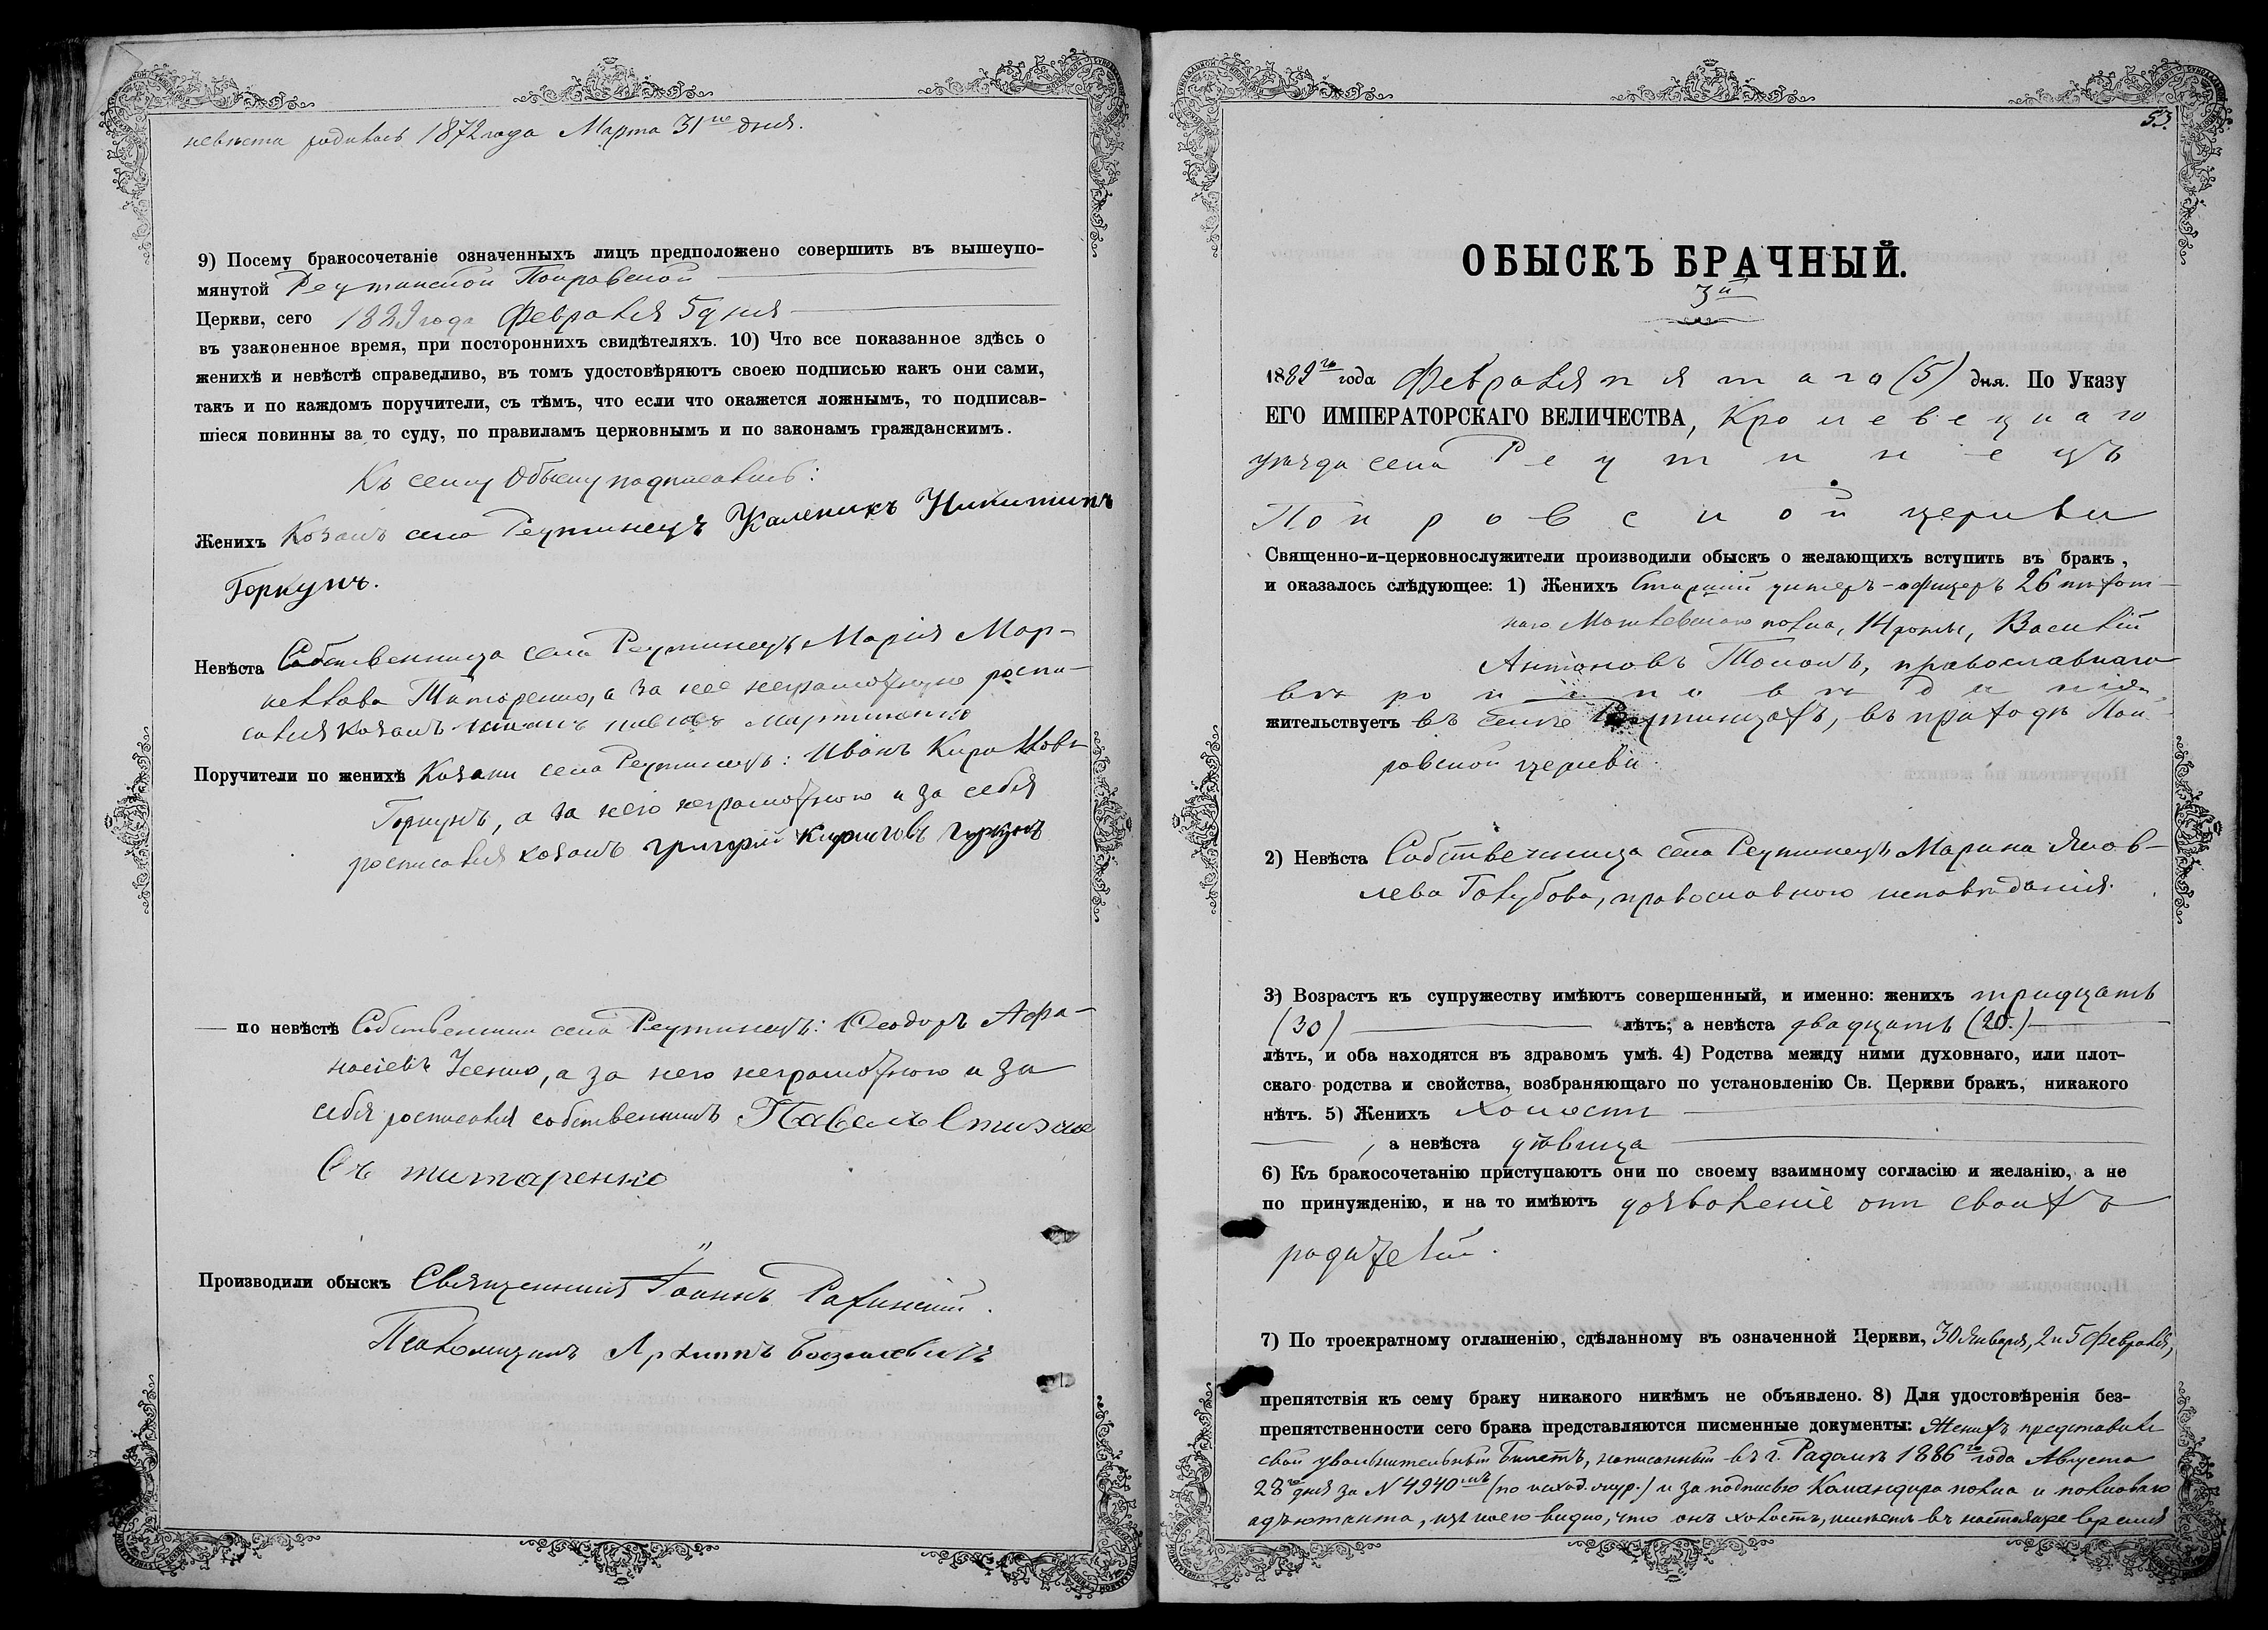 невѣста родилась 1872 года Марта 31го дня.
9) Посему бракосочетаніе означенныхъ лицъ предположено совершить въ вышеупо-
мянутой Реутинской Покровской
Церкви, сего 1889 года Февраля 5 дня
въ узаконенное время, при постороннихъ свидѣтеляхъ. 10) Что все показанное здѣсь о
женихѣ и невѣстѣ справедливо, въ томъ удостовѣряютъ своею подписью какъ они сами,
такъ и по каждомъ поручители, съ тѣмъ, что если что окажется ложнымъ, то подписав-
шіеся повинны за то суду, по правиламъ церковнымъ и по законамъ гражданскимъ.
Къ сему Обыску подписались:
Женихъ Козакъ села Реутинецъ Каленикъ Никитинъ
Горкунъ.
Невѣста Собственница села Реутинецъ Марія Мар-
келлова Титаренко, а за нее неграмотную роспи-
сался козакъ
Поручители по женихѣ Козаки села Реутинецъ: Иванъ Кирилловъ
Горкунъ, а за него неграмотного и за себя
росписался козакъ григорій Кириловъ горкунъ
— по невѣстѣ Собственники села Реутинецъ: Ѳеодоръ Афа-
насіевъ Усенко, а за него неграмотного и за
себя росписался собственникъ Павелъ
титаренко
Производили обыскъ Священникъ Іоаннъ Рахинскій.
Псаломщикъ
53.
ОБЫСКЪ БРАЧНЫЙ.
3й
1889го года Февраля пятаго (5) дня. По Указу
ЕГО ИМПЕРАТОРСКАГО ВЕЛИЧЕСТВА, Кролевецкаго
уѣзда села Реутинецъ
Покровской церкви
Священно-и-церковнослужители производили обыскъ о желающихъ вступить въ бракъ,
и оказалось слѣдующее: 1) Женихъ Старшій унтеръ-офицеръ 26 пѣхот-
наго Могилевскаго полка, 14 роты, Василій
Антоновъ православнаго
вѣроисповѣданія,
жительствуетъ въ селѣ Реутинцахъ, въ приходѣ Пок-
ровской церкви.
2) Невѣста Собственница села Реутинецъ Марина Яков-
лева Голубова, православного исповѣданія.
3) Возрастъ къ супружеству имѣютъ совершенный, и именно: женихъ тридцать
(30) лѣтъ; а невѣста двадцать (20.)
лѣтъ, и оба находятся въ здравомъ умѣ. 4) Родства между ними духовнаго, или плот-
скаго родства и свойства, возбраняющаго по установленію Св. Церкви бракъ, никакого
нѣтъ. 5) Женихъ холостъ
, а невѣста дѣвица
6) Къ бракосочетанію приступаютъ они по своему взаимному согласію и желанію, а не
по принужденію, и на то имѣютъ дозволеніе отъ своихъ
родителей.
7) По троекратному оглашенію, сдѣланному въ означенной Церкви, 30 Января, 2 и 5 Февраля,
препятствія къ сему браку никакого никѣмъ не объявлено. 8) Для удостовѣренія без-
препятственности сего брака представляются писменные документы: Женихъ представилъ
свой увольнительный билетъ, написанный въ г. Радомѣ 1886го года Августа
28го дня за N 4940мъ (по исход. жур.) и за подписью Командира полка и полковаго
адъютанта, изъ коего видно, что онъ холостъ, имѣетъ въ настоящее время